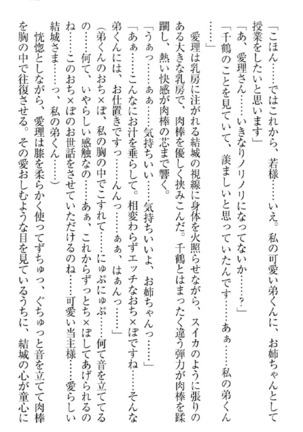 「こほん……ではこれから、若様……いえ。私の可愛い弟くんに、お姉ちゃんとして
授業をしたいと思います」
「あ、愛理さん……いきなりノリノリになってないか……？」
「千鶴のことを見ていて、羨ましいと思っていたんです……あぁ……私の弟くん
……♥」
　愛理は乳房に注がれる結城の視線に身体を火照らせながら、スイカのように張りの
ある大きな乳房で、肉棒を優しく挟みこんだ。千鶴とはまったく違う弾力が肉棒を蹂
躙し、熱い快感が肉棒の芯まで響く。
「うぁっ……ぁぁっ……気持ちいい……気持ちいいよ、お姉ちゃんっ……」
「あぁ……こんなにお汁を垂らして。相変わらずエッチなおち×ぽですね……そんな
弟くんには、お仕置きです……んんっ……ぁぁ、はぁんっ……」
（弟くんのおち×ぽ、私の胸の中でこすれて……にゅぷにゅぷ……何て音を立ててる
の……何て、いやらしい感触なの……あぁ、これからずっとち×ぽしてあげられるの
ね……このおち×ぽのお世話をさせていただけるのね……可愛い当主様……愛らしい
結城さま……っ、私の弟くん……）
　恍惚としながら、愛理は膝を柔らかく使ってずちゅっ、ぐちゅっと音を立てて肉棒
を胸の中で往復させる。その愛おしむような目を見ているうちに、結城の心が童心に